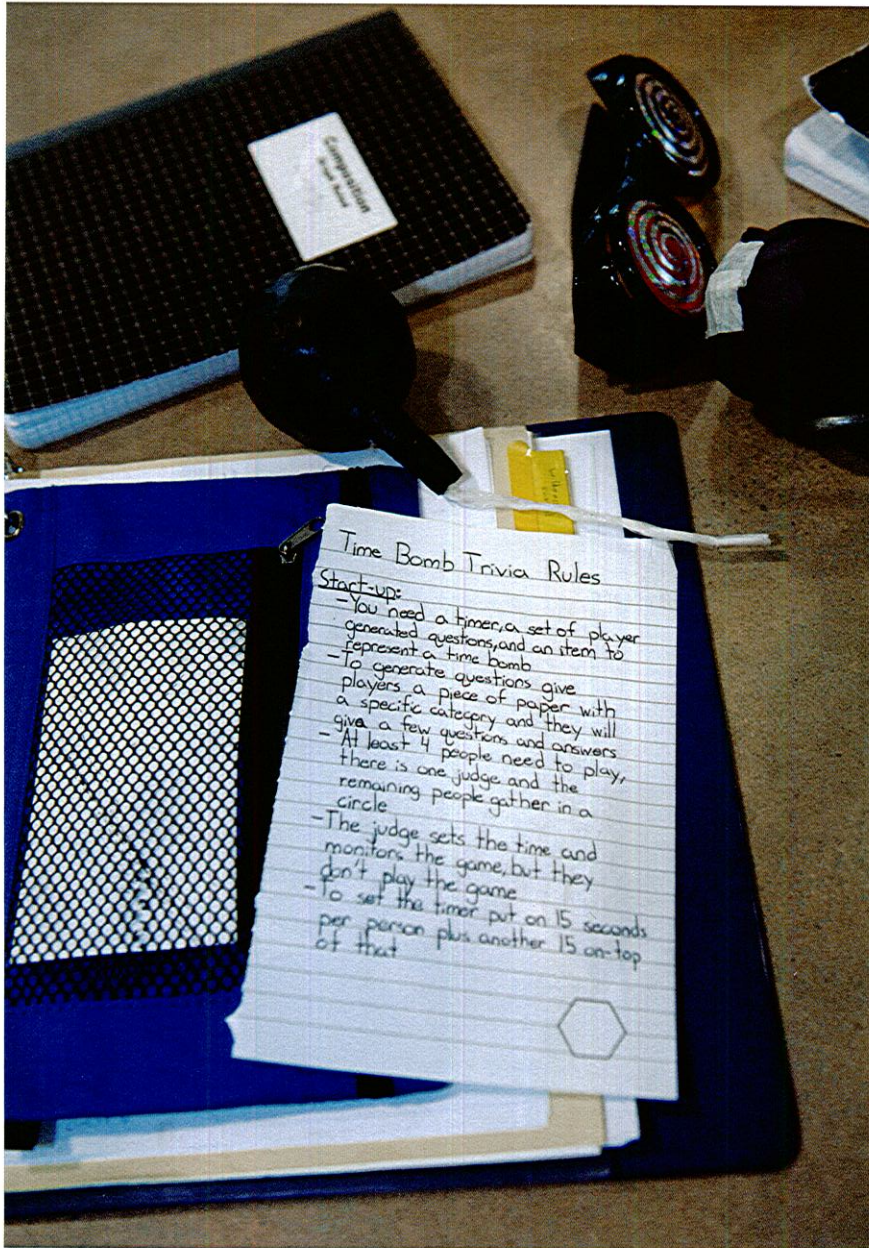 Composition
Time Bomb Trivia Rules
Start-up:
-You need a timer, a set of player
generated questions, and an item to
represent a time bomb
-To generate questions give
players a piece of paper with
a specific category and they will
give a few questions and answers
- At least 4 people need to play,
there is one judge and the
remaining people gather in a
circle
-The judge sets the time and
monitors the game, but they
don't play the game
-To set the timer put on 15 seconds
per person plus another 15 on-top
of that